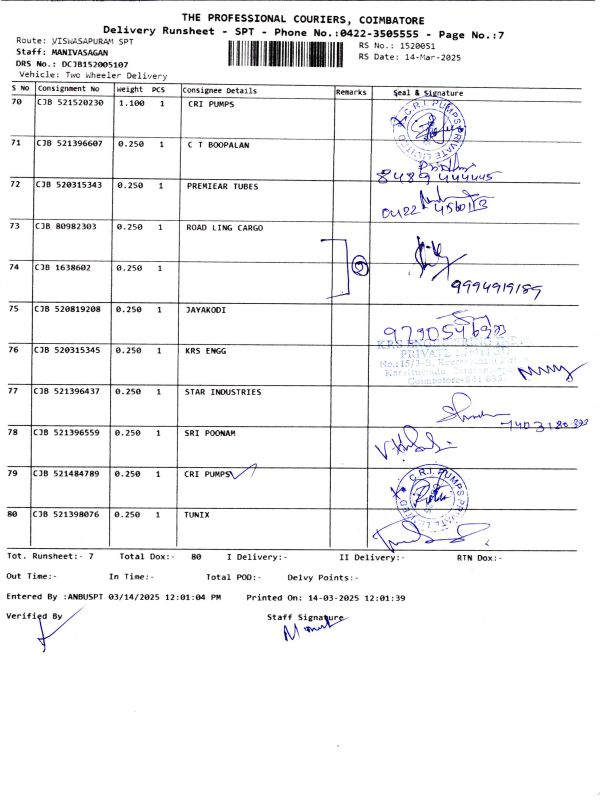 THE PROFESSIONAL COURIERS, COIMBATORE
Delivery Runsheet - SPT - Phone No.:0422-3505555 - Page No.:7
Route: VISWASAPURAM SPT
Staff: MANIVASAGAN
DRS No.: DCJB152005107
Vehicle: Two Wheeler Delivery
RS No.: 1520051
RS Date: 14-Mar-2025
S No Consignment No Weight PCS Consignee Details Remarks Seal & Signature
70 CJB 521520230 1.100 1 CRI PUMPS
C.R.I. PUMPS PRIVATE LIMITED
71 CJB 521396607 0.250 1 C T BOOPALAN
8489 444445
72 CJB 520315343 0.250 1 PREMIEAR TUBES
0422 4560113
73 CJB 80982303 0.250 1 ROAD LING CARGO
74 CJB 1638602 0.250 1
9994919189
75 CJB 520819208 0.250 1 JAYAKODI
76 CJB 520315345 0.250 1 KRS ENGG
PRIVATE LIMITED
Coimbatore-641 035.
77 CJB 521396437 0.250 1 STAR INDUSTRIES
78 CJB 521396559 0.250 1 SRI POONAM
79 CJB 521484789 0.250 1 CRI PUMPS
C.R.I. PUMPS PRIVATE LIMITED
80 CJB 521398076 0.250 1 TUNIX
Tot. Runsheet:- 7 Total Dox:- 80 I Delivery:- II Delivery:- RTN Dox:-
Out Time:- In Time:- Total POD:- Delvy Points:-
Entered By :ANBUSPT 03/14/2025 12:01:04 PM Printed On: 14-03-2025 12:01:39
Verified By Staff Signature